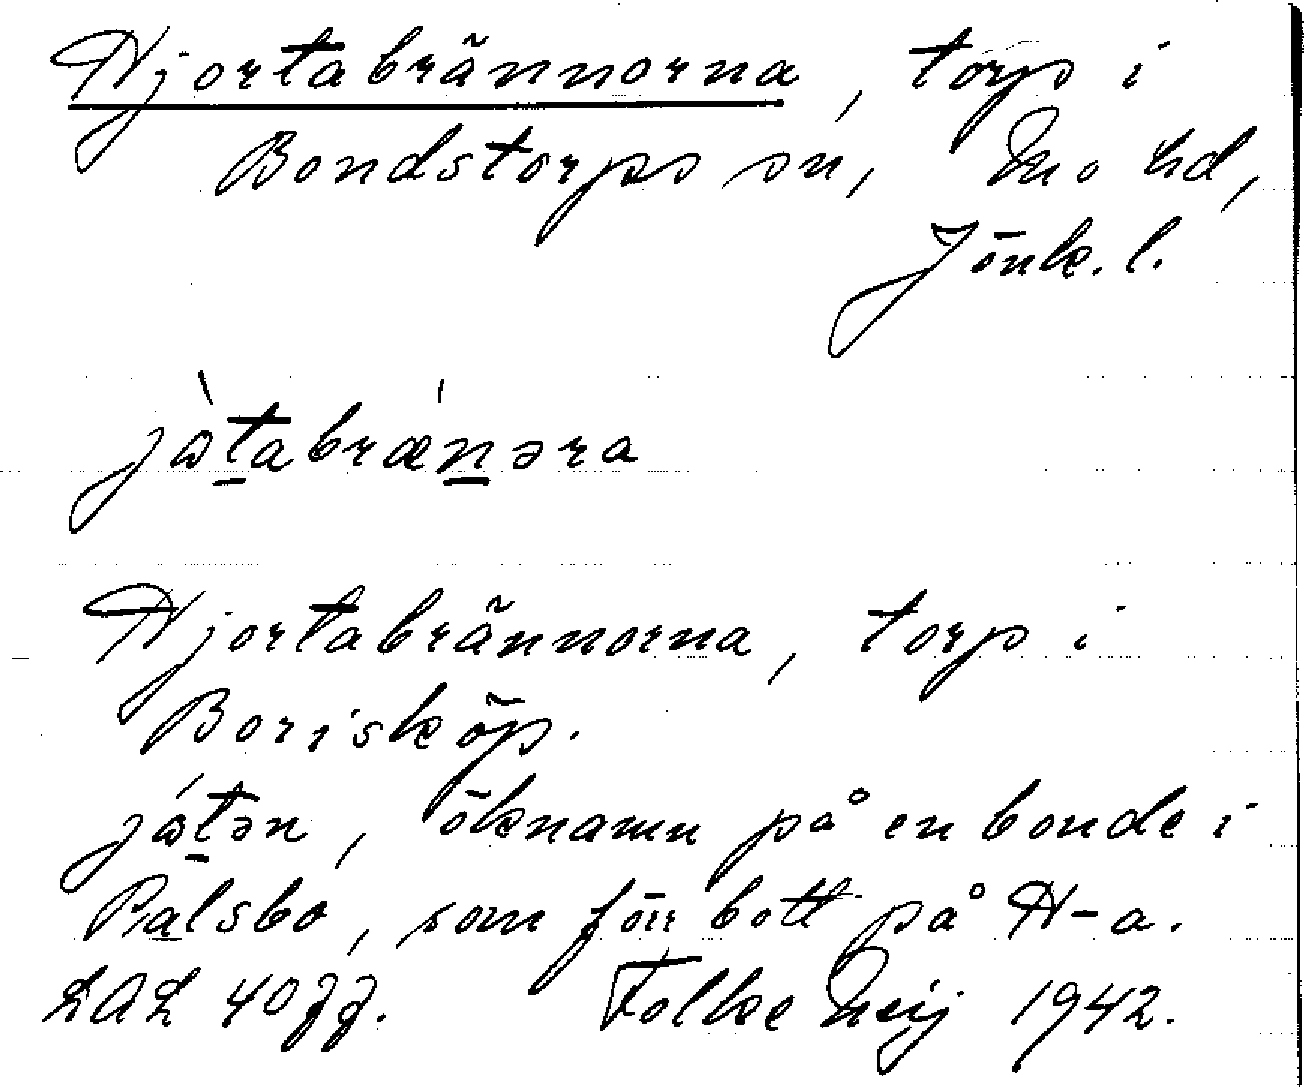 Hjortabrännorna, torp i
Bondstorps sn, Mo hd,
Jönk. l.
jɷ̀tabrænəra
Hjortabrännorna, torp i
Borisköp.
jɷ́tən, öknamn på en bonde i
Palsbo, som förr bott på H-a.
LAL 40 ff. Folke Meij 1942.